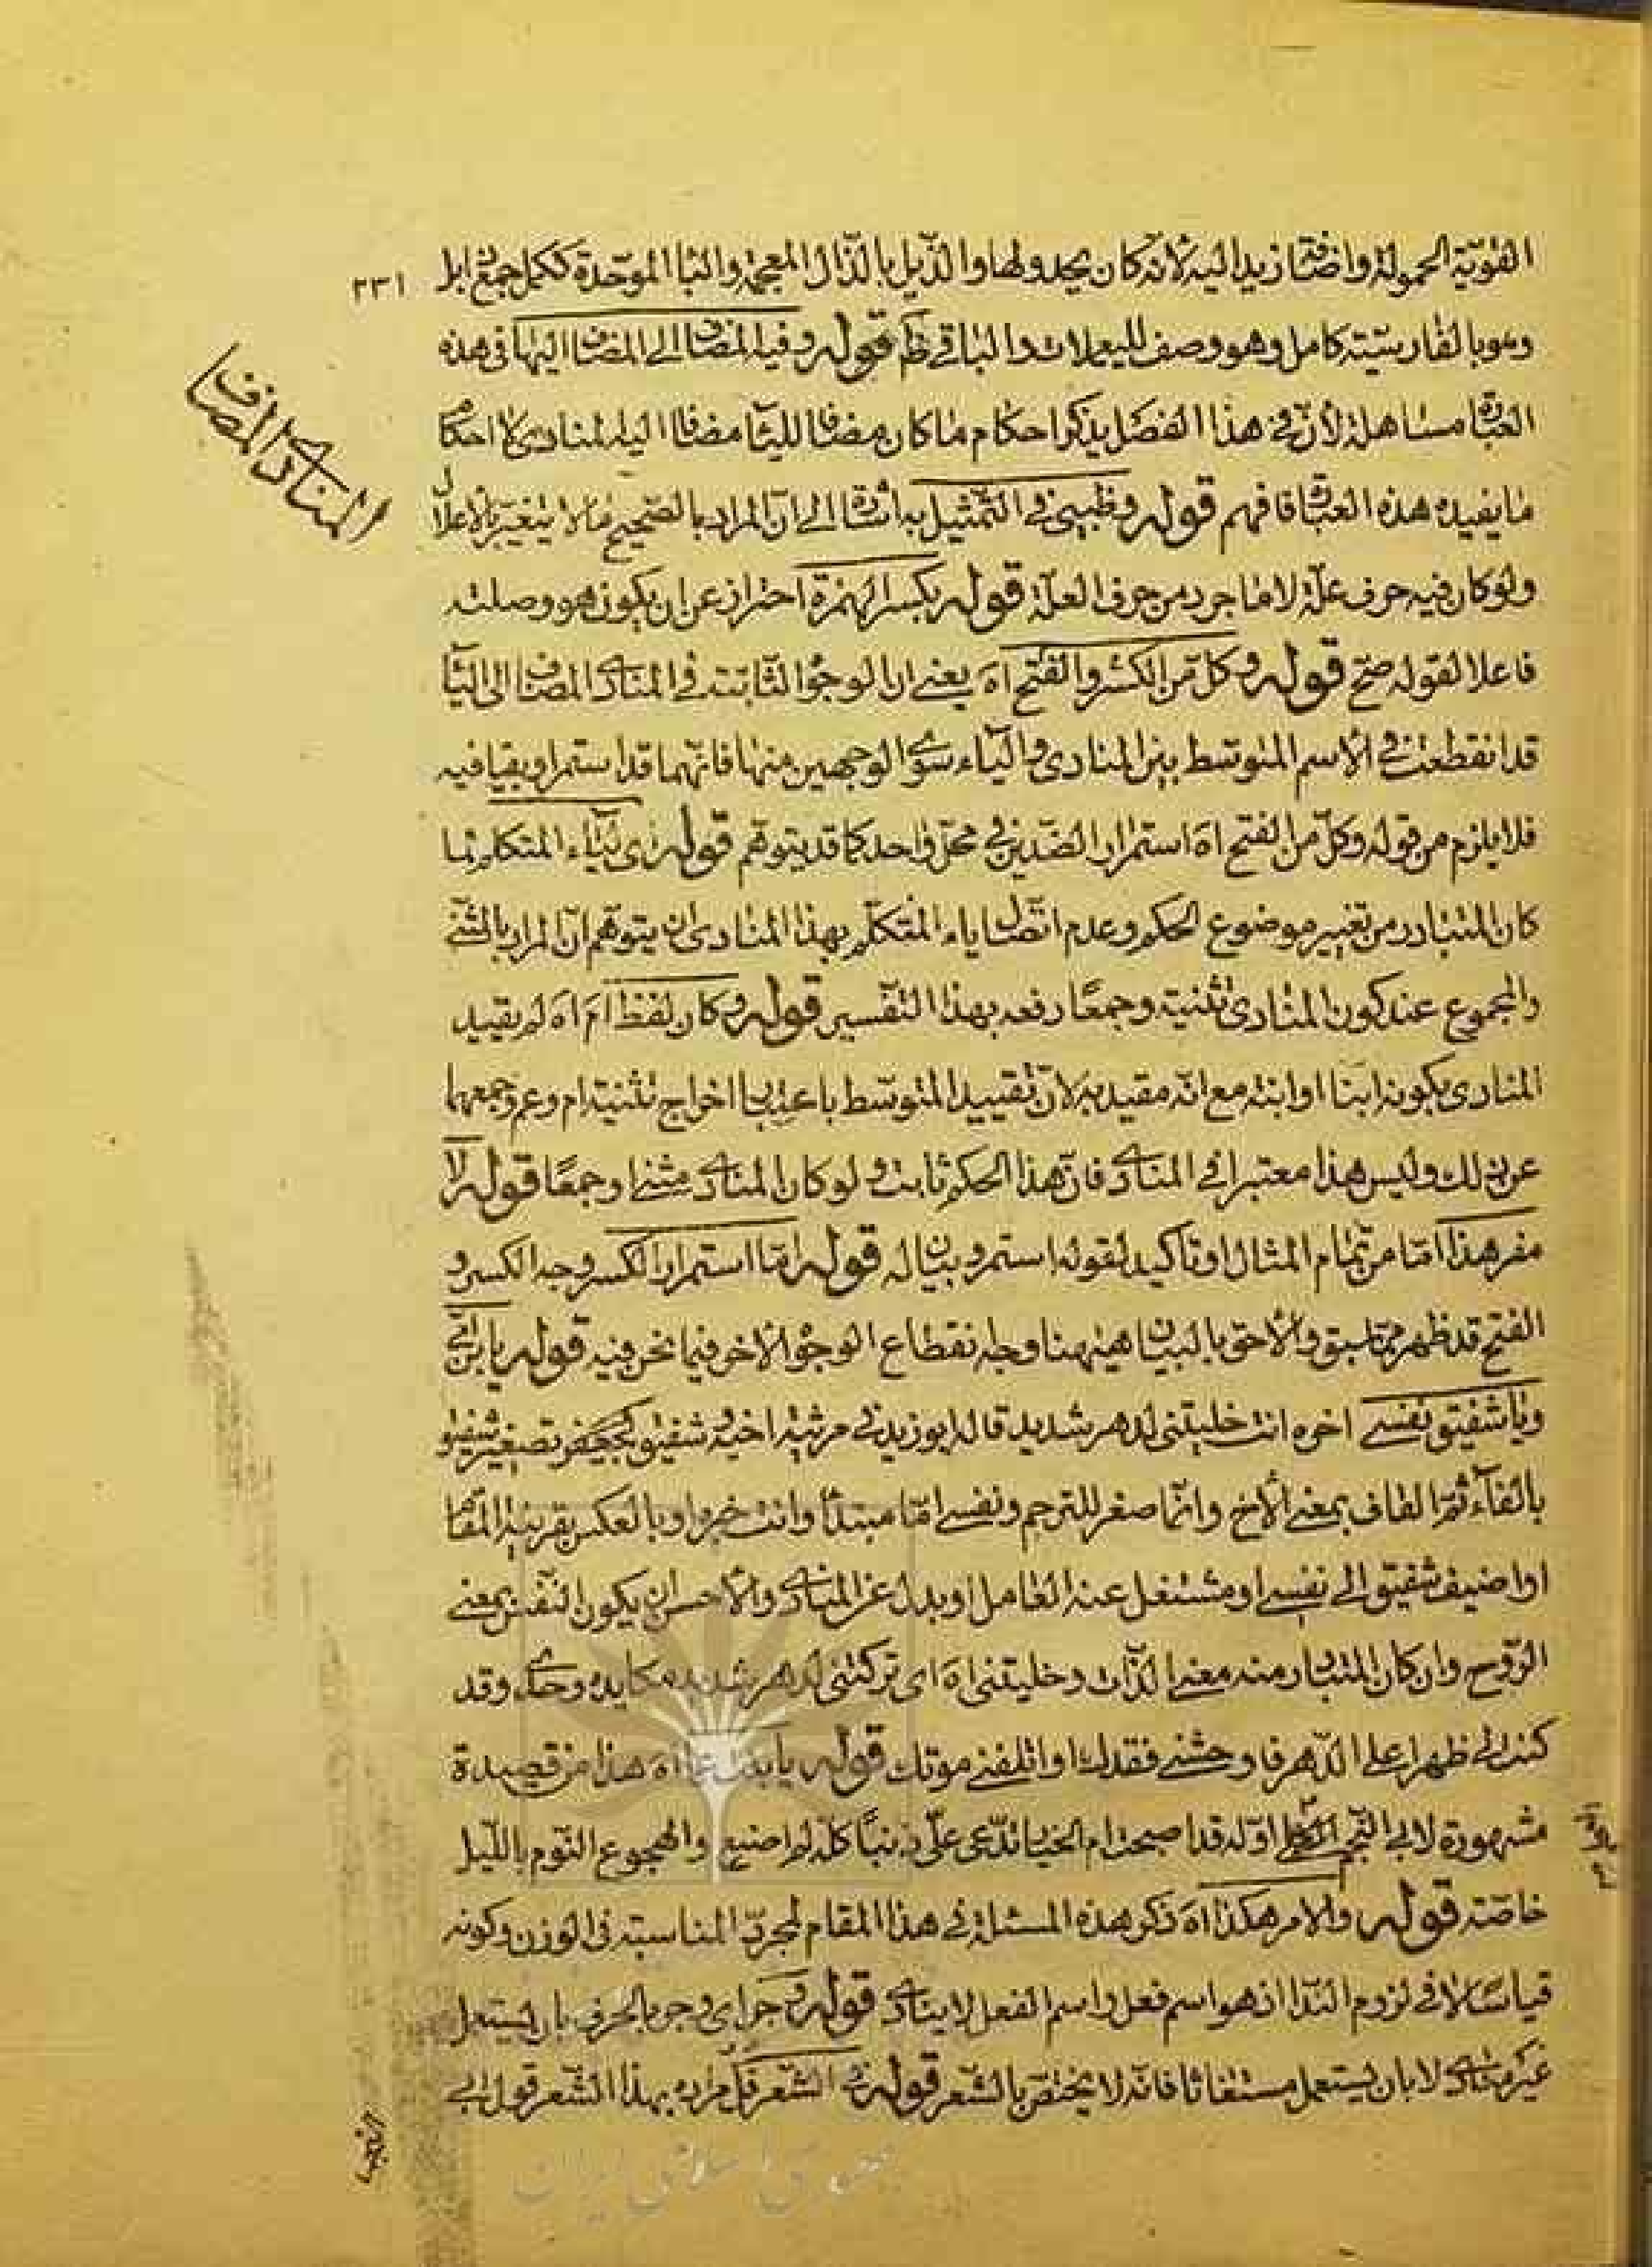 القويّة الحمولة واضافتها زيدا اليه لأنّه كان يحدو لها والذّبل بالذّال المعجمة والباء الموحّدة ككمل جمع ذابل
٢٣١
وهو بالفارسيّة كامل وهو وصف لليعملات والباقي ظم قوله وفي المضاف الى المضاف اليها في هذه
المنادى المضاف
العبارة مساهلة لأنّ في هذا الفصل يذكر احكام ما كان مضافا للياء مضافا اليه لمنادى لا احكام
ما يفيده هذه العبارة فافهم قوله وظبيي في التّمثيل به اشارة الى انّ المراد بالصّحيح ما لا يتغيّر بالاعلال
ولو كان فيه حرف علّة لا ما جرد من حرف العلّة قوله بكسر الهمزة احتراز عن ان يكون هو وصلته
فاعلا لقوله صحّ قوله وكلّ من الكسر والفتح اه يعنى ان الوجوه الثّابتة في المنادى المضاف الى الياء
قد انقطعت في الأسم المتوسط بين المنادى والياء سوى الوجهين منها فانّهما قد استمرا وبقيا فيه
فلا يلزم من قوله وكلّ من الفتح اه استمرار الضّدين في محلّ واحد كما قد يتوهّم قوله اى لياء المتكلم لما
كان المتبادر من تغيير موضوع الحكم وعدم اتّصال ياء المتكلّم بهذا المنادى ان يتوهم انّ المراد بالمثنّى
والمجموع عند كون المنادى تثنية وجمعًا رفعه بهذا التّفسير قوله وكان لفظ ام اه لم يقيد
المنادى بكونه ابنا او ابنة مع انّه مقيد به لأنّ تقييد المتوسّط باعتبار اخراج تثنية ام وعم وجمعهما
عن ذلك وليس هذا معتبرا في المنادى فانّ هذا الحكم ثابت ولو كان المنادى مثنى او جمعًا قوله لا
مفر هذا امّا من تمام المثال او تاكيد لقوله استمر وبيان له قوله امّا استمرار الكسر وجه الكسر و
الفتح قد ظهر ممّا سبق والأحق بالبيان هيهنا وجه انقطاع الوجوه الأخر فيما نحن فيه قوله يا بن امّى
ويا شقيّق نفسى اخره انت خلّيتنى لدهر شديد قاله ابو زيد في مرثية اخيه وشقيّق كجعيفر تصغير شقيق
بالفاء ثمّ القاف بمعنى الأخ وانّما صغر للترحم ونفسى امّا مبتدأ وانت خبره او بالعكس بقرينة المقام
او اضيف شقيق الى نفسى او مشتغل عنه العامل او بدل عن المنادى والأحسن ان يكون النّفس بمعنى
الرّوح وان كان المتبادر منه معنى الذّات وخليتنى اه اى تركتنى لدهر شديد مكايده وحدى وقد
كنت لى ظهرا على الدّهر فاوحشنى فقدك او اتلفنى موتك قوله يا بنت عمّا اه هذا من قصيدة
مشهورة لابى النّجم العجلى اوّله قد اصبحت ام الخيار تدّعى علّى ذنبًا كلّه لم اصنع والهجوع النّوم باللّيل
خاصّة قوله والامر هكذا اه ذكر هذه المسئلة في هذا المقام لمجرد المناسبة في الوزن وكونه
قياسًا لا في لزوم النّدا اذ هو اسم فعل واسم الفعل لا ينادى قوله وجر اى وجر بالحرف بان يستعمل
غير منادى لا بان يستعمل مستغاثا فانّه لا يختصّ بالشّعر قوله في الشّعر فل مراده بهذا الشّعر قول ابى
النجم